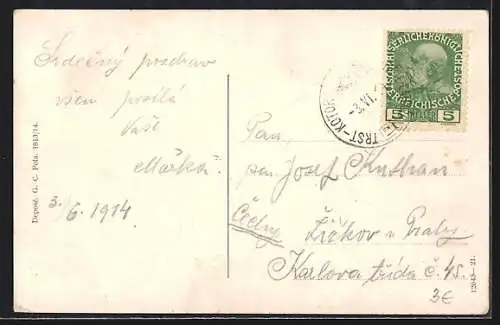 Srdečný pozdrav
všem posílá
Vaše
Mařka.
3./6. 1914
Depose. G. C. Pola. 1913/14.
TRST-KOTOR
3.VI.
KAISERLICHE KÖNIGLICHE
ÖSTERREICHISCHE POST
5 HELLER 5
Pan,
pan Josef
Čechy
Žižkov u Prahy
Karlova třída č. 45.
3€
12043 - 21.